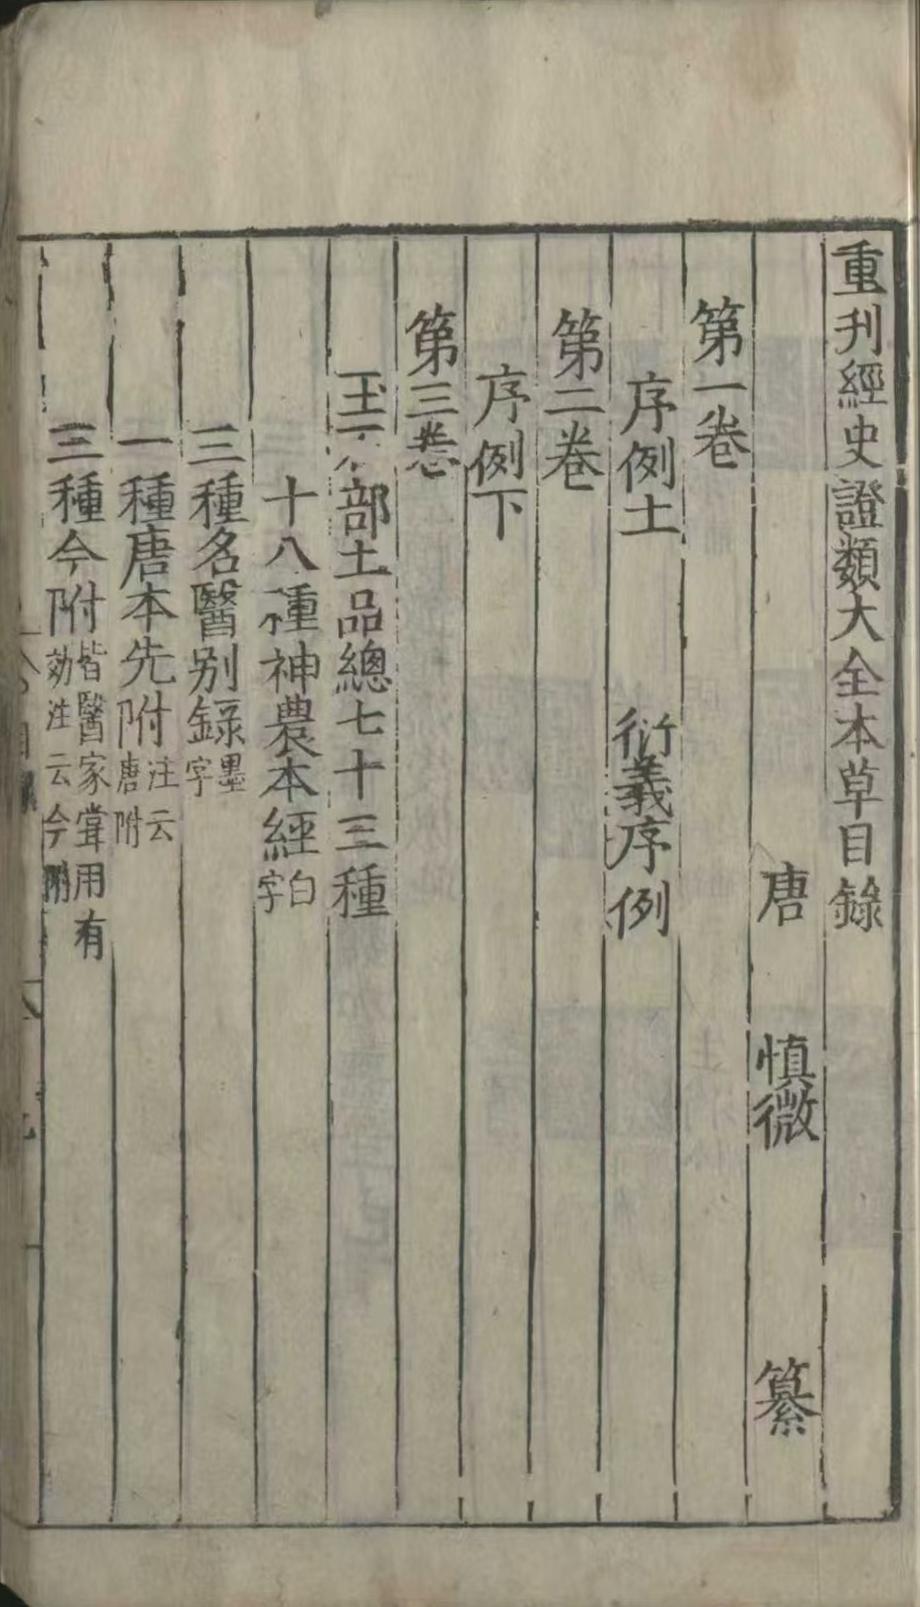 重刋經史證類大全本草目錄
唐　慎微　纂
第一卷
序例上　衍義序例
第二卷
序例下
第三卷
玉石部上品總七十三種
十八種神農本經白字
三種名醫別錄墨字
一種唐本先附注云唐附
三種今附皆醫家嘗用有効注云今附